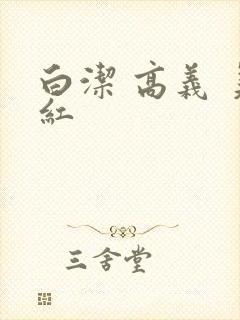 白潔 高義
紅
三舍堂